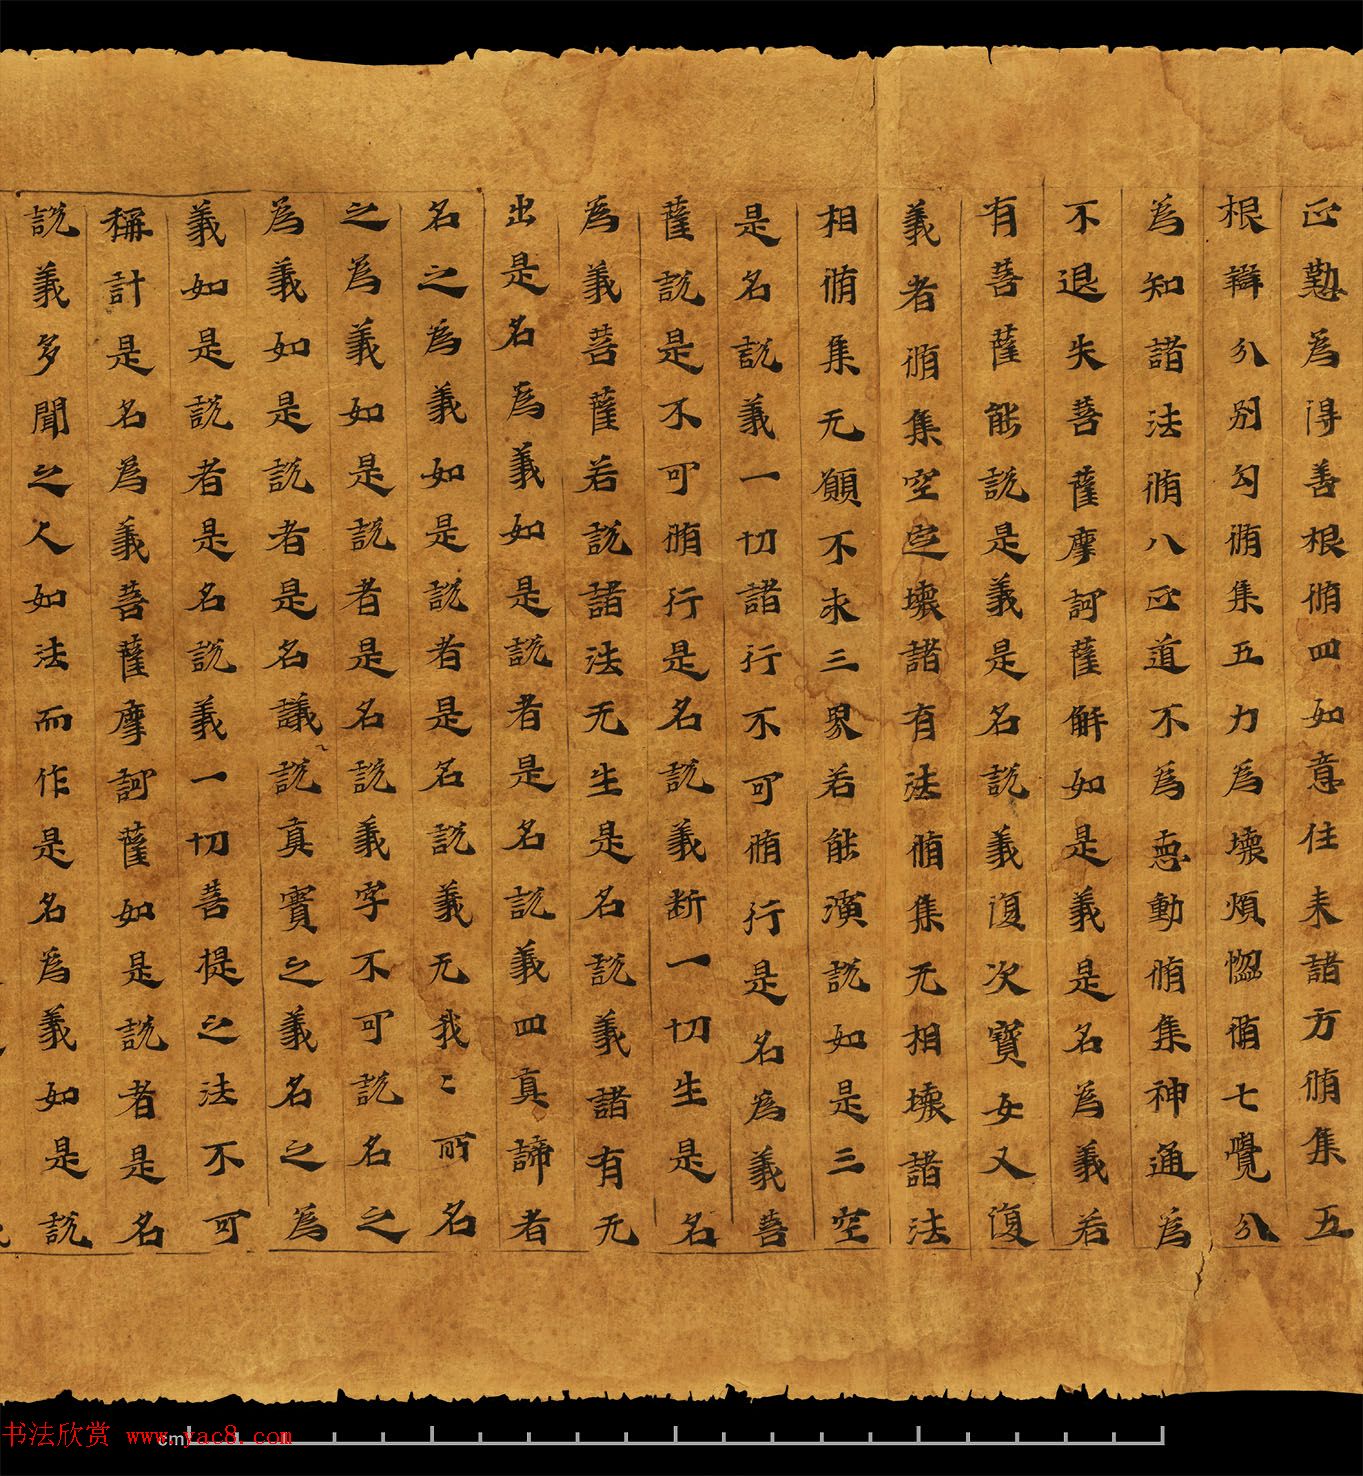 正懃為得善根脩四如意住来諸方脩集五
根辯分別句脩集五力為壞煩惚脩七覺分
為知諸法脩八正道不為惪動脩集神通為
不退失菩薩摩訶薩解如是義是名為義若
有菩薩能説是義是名説義復次寶女又復
義者脩集空定壞諸有法脩集无相壞諸法
相脩集无願不求三界若能演説如是三空
是名説義一切諸行不可脩行是名為義菩
薩説是不可脩行是名説義断一切生是名
為義菩薩若説諸法无生是名説義諸有无
出是名為義如是説者是名説義四真諦者
名之為義如是説者是名説義无我〻所名
之為義如是説者是名説義字不可説名之
為義如是説者是名議説真實之義名之為
義如是説者是名説義一切菩提之法不可
稱計是名為義菩薩摩訶薩如是説者是名
説義多聞之人如法而作是名為義如是説
书法欣赏 www.yac8.com
cm